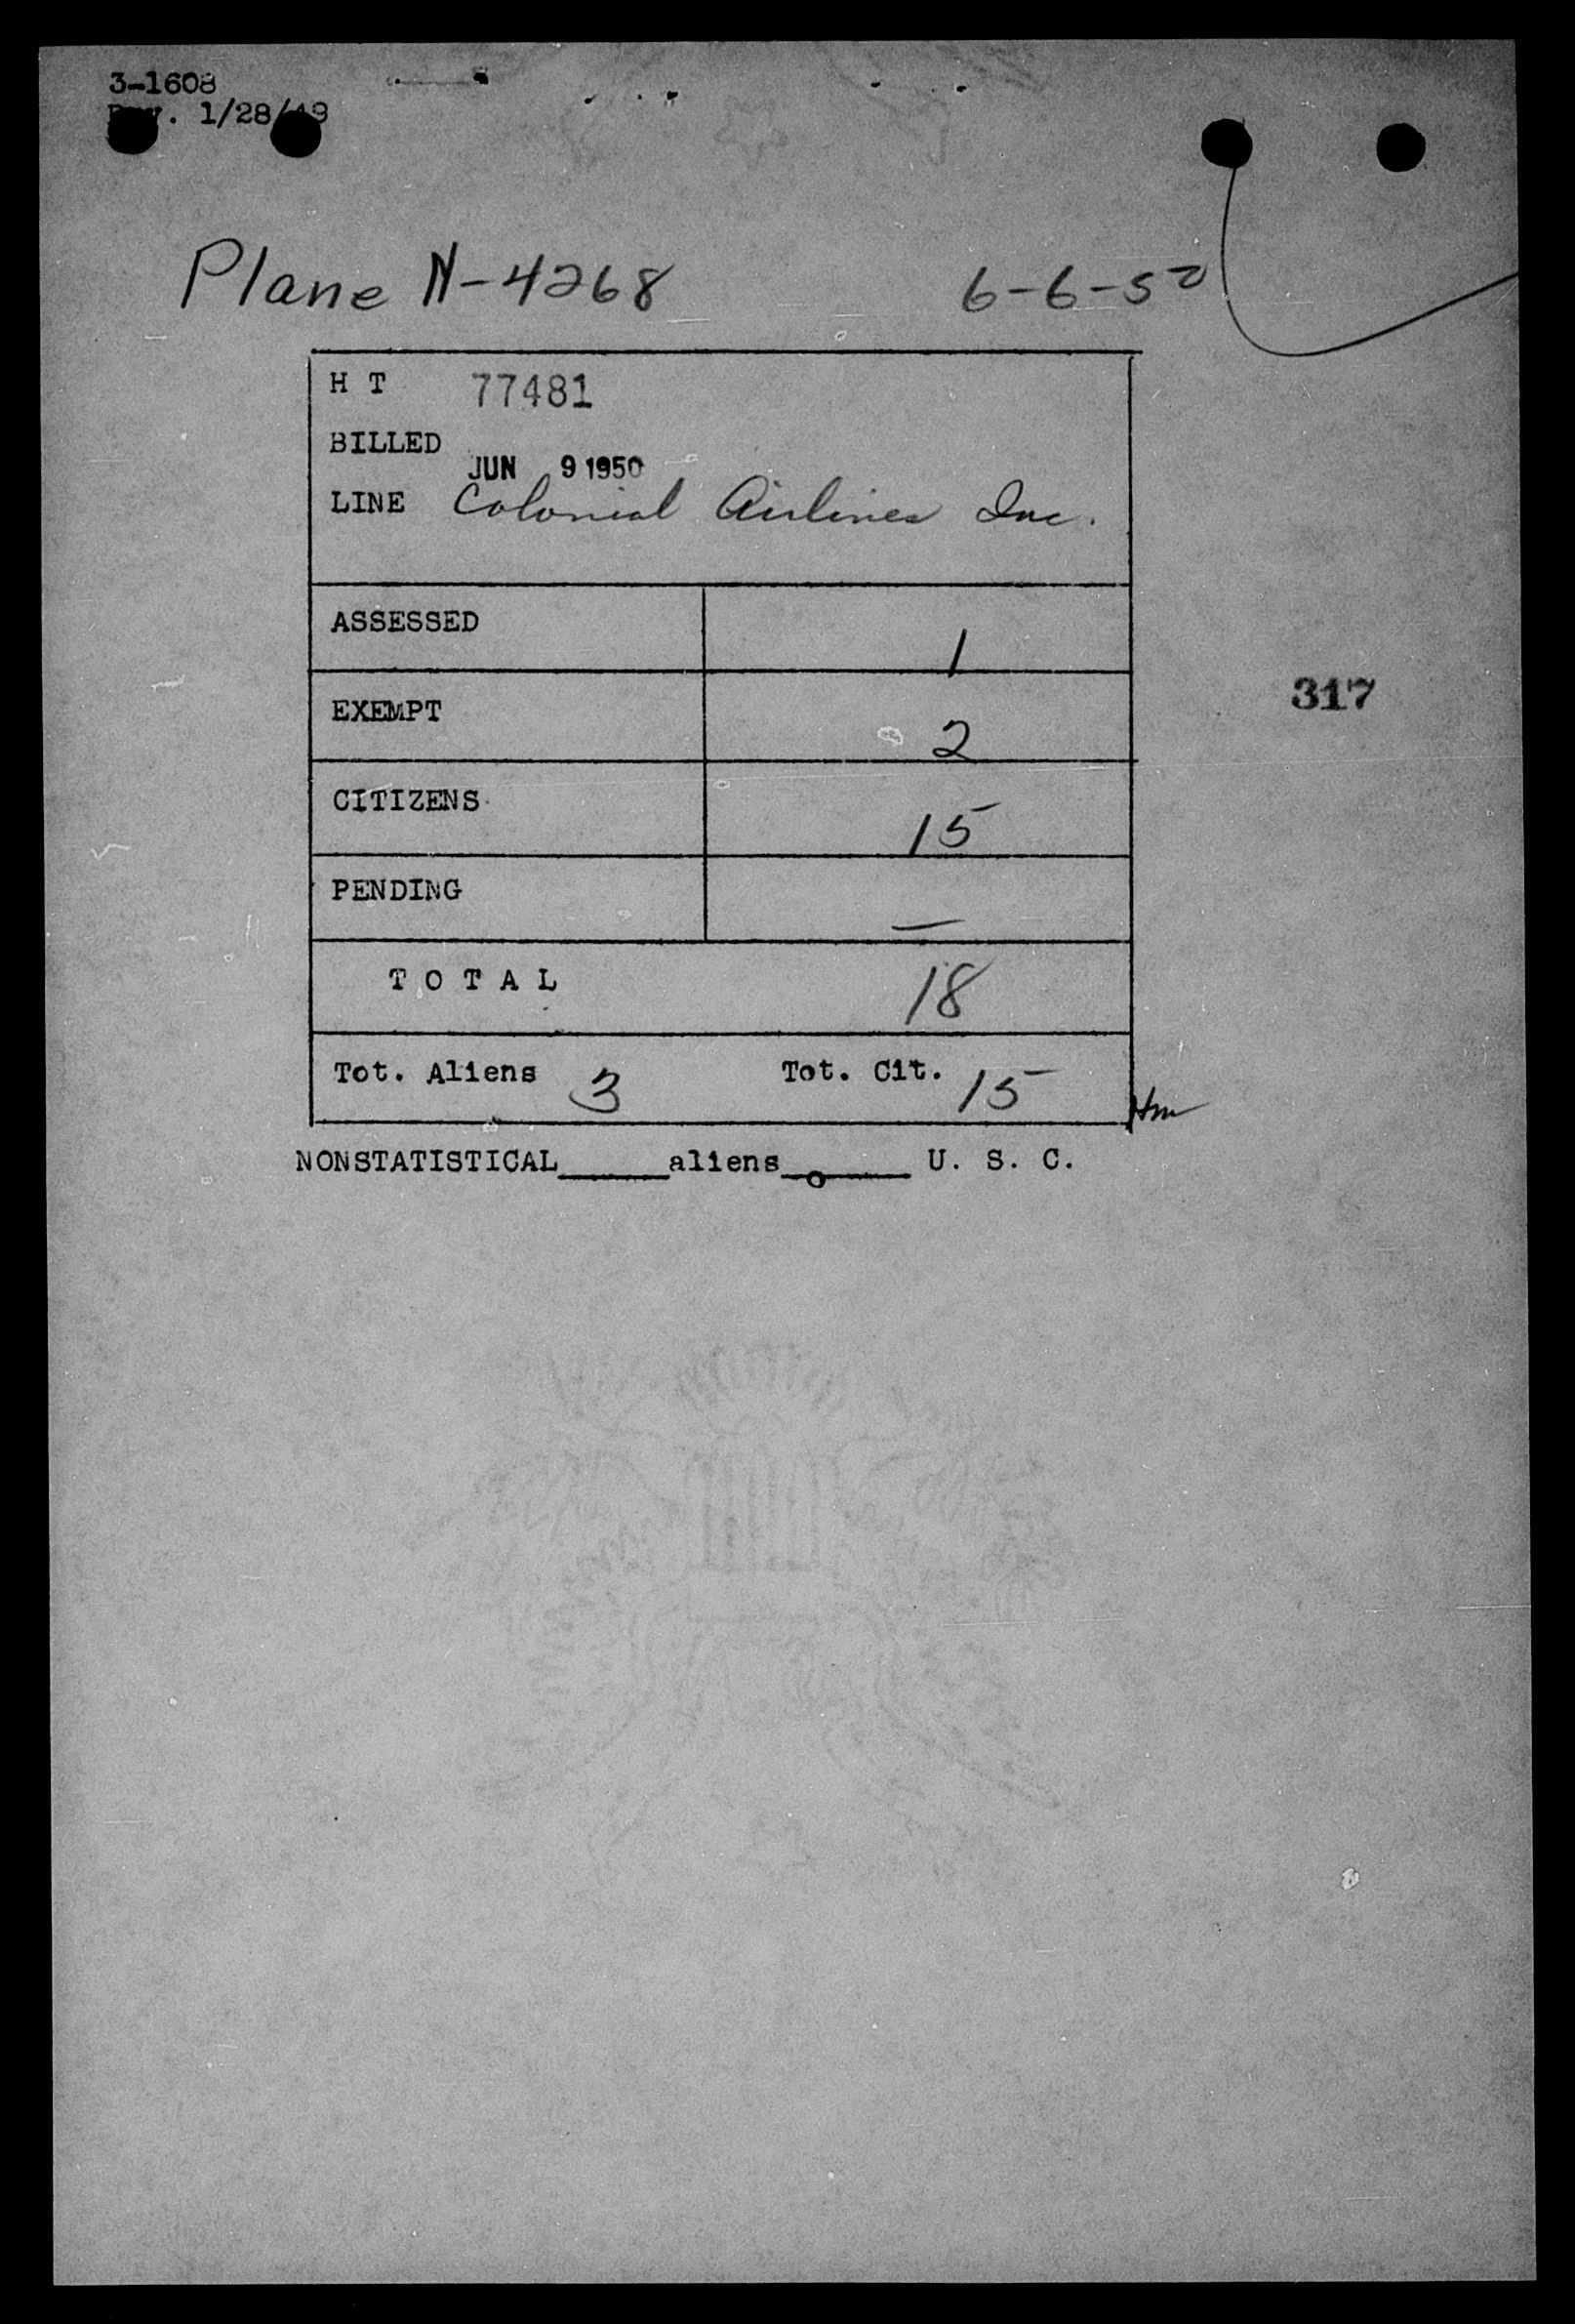 3-1608
Rev. 1/28/49
Plane N-4268 6-6-50
H T 77481
BILLED
JUN 9 1950
LINE Colonial Airlines Inc.
ASSESSED 1
317
EXEMPT 2
CITIZENS 15
PENDING —
T O T A L 18
Tot. Aliens 3 Tot. Cit. 15
Hm
NONSTATISTICAL______aliens__o____ U. S. C.